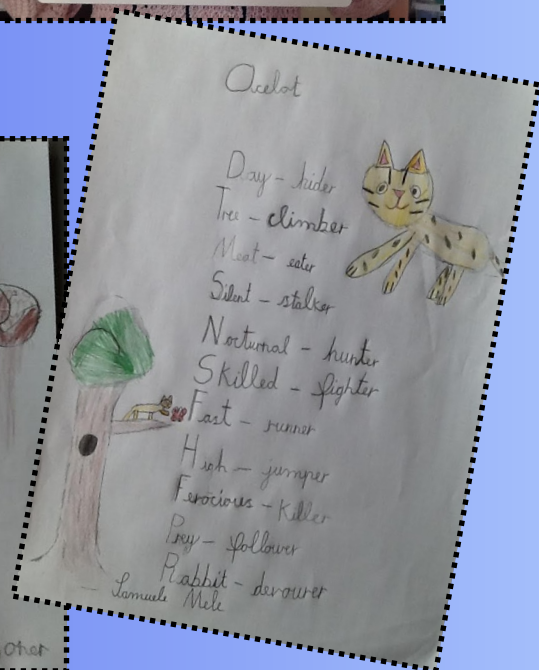 Ocelot
Day - hider
Tree - climber
Meat - eater
Silent - stalker
Nocturnal - hunter
Skilled - fighter
Fast - runner
High - jumper
Ferocious - killer
Prey - follower
Rabbit - devourer
Samuele Mele
other